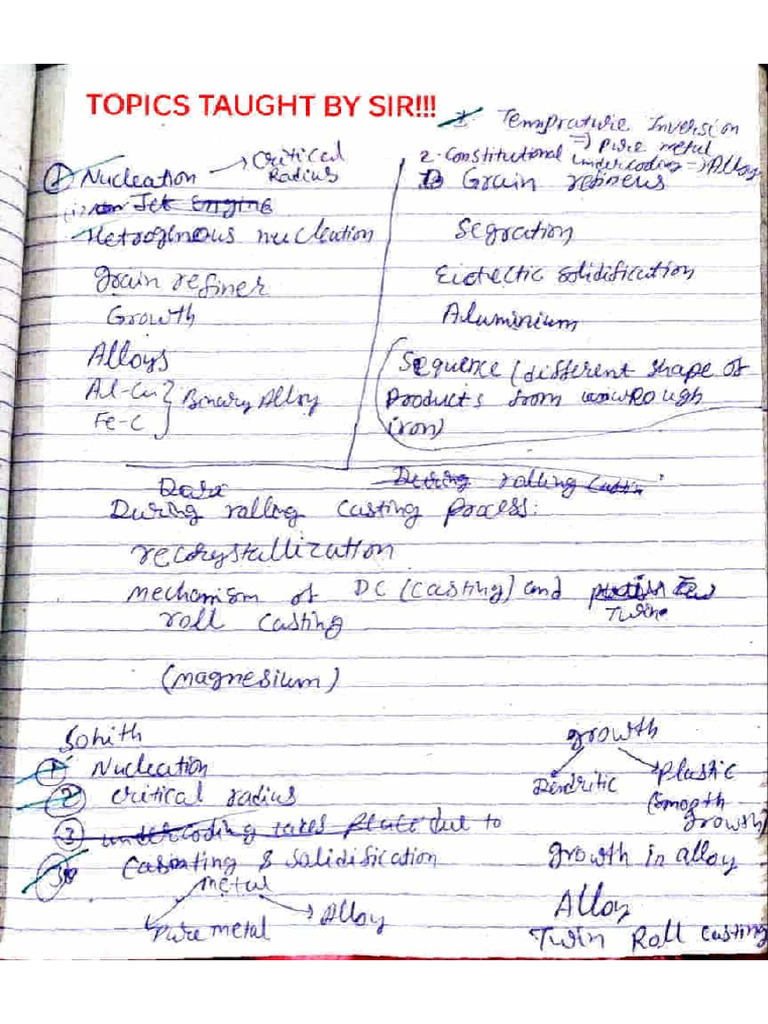 TOPICS TAUGHT BY SIR!!!
1 Temprature Inversion
=> Pure metal
2. Constitutional undercoding => Alloy
① Nucleation → Critical Radius
(i) Jet Engine
Hetroginous nucleation
grain refiner
Growth
Alloys
Al-Cu
Fe-C
Binary Alloy
Grain refiners
Segration
Eutectic solidification
Aluminium
Sequence (different shape of
Products from wrough
iron)
During rolling
During rolling casting process:
recrystallization
mechanism of DC (casting) and Twin
roll casting
(magnesium)
Sohith
① Nucleation
② Critical radius
③ undercoding takes place due to
Casting & Solidification
metal
Pure metal → Alloy
growth
Dendritic
Plastic
(Smooth
growth)
growth in alloy
Alloy
Twin Roll casting